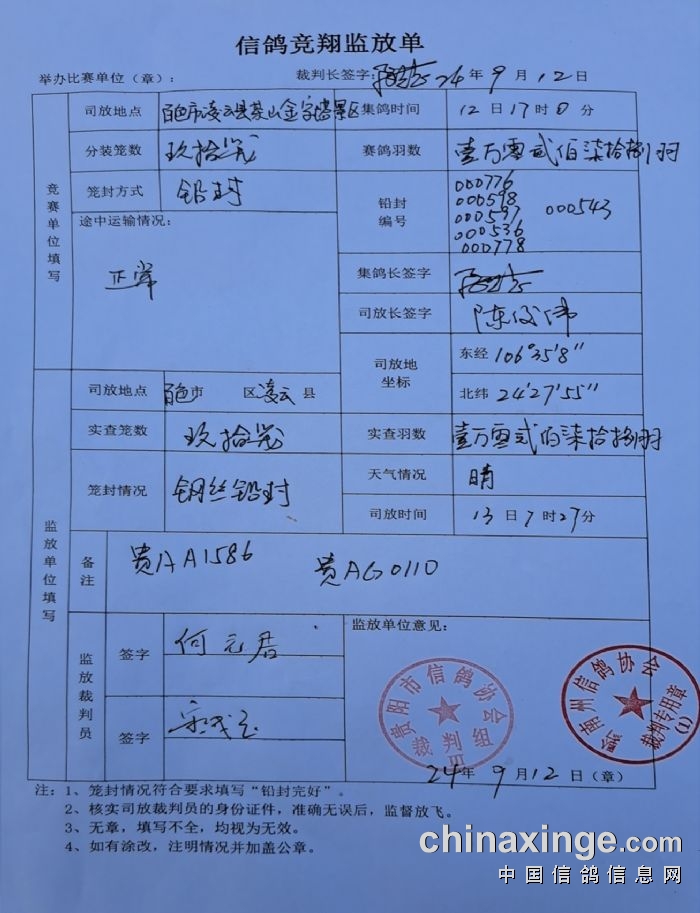 信鸽竞翔监放单
举办比赛单位（章）： 裁判长签字： 24年9月12日
竞赛单位填写
司放地点 百色市凌云县茶山金字塔景区 集鸽时间 12日17时0分
分装笼数 玖拾贰 赛鸽羽数 壹万零贰佰柒拾捌羽
笼封方式 铅封 铅封编号 000776
000598
000597 000543
000536
000778
途中运输情况：
正常
集鸽长签字
司放长签字 陈俊伟
司放地坐标 东经 106°35'8"
北纬 24°27'55"
监放单位填写
司放地点 百色市 区凌云县
实查笼数 玖拾贰 实查羽数 壹万零贰佰柒拾捌羽
笼封情况 钢丝铅封 天气情况 晴
司放时间 13日7时27分
备注 贵AA1586 贵AG0110
监放裁判员
签字 何元君
签字
监放单位意见：
贵阳市信鸽协会
裁判组
黔南州信鸽协会
裁判专用章
(1)
24年9月12日（章）
注：1、笼封情况符合要求填写“铅封完好”。
2、核实司放裁判员的身份证件，准确无误后，监督放飞。
3、无章，填写不全，均视为无效。
4、如有涂改，注明情况并加盖公章。
chinaxinge.com
中国信鸽信息网